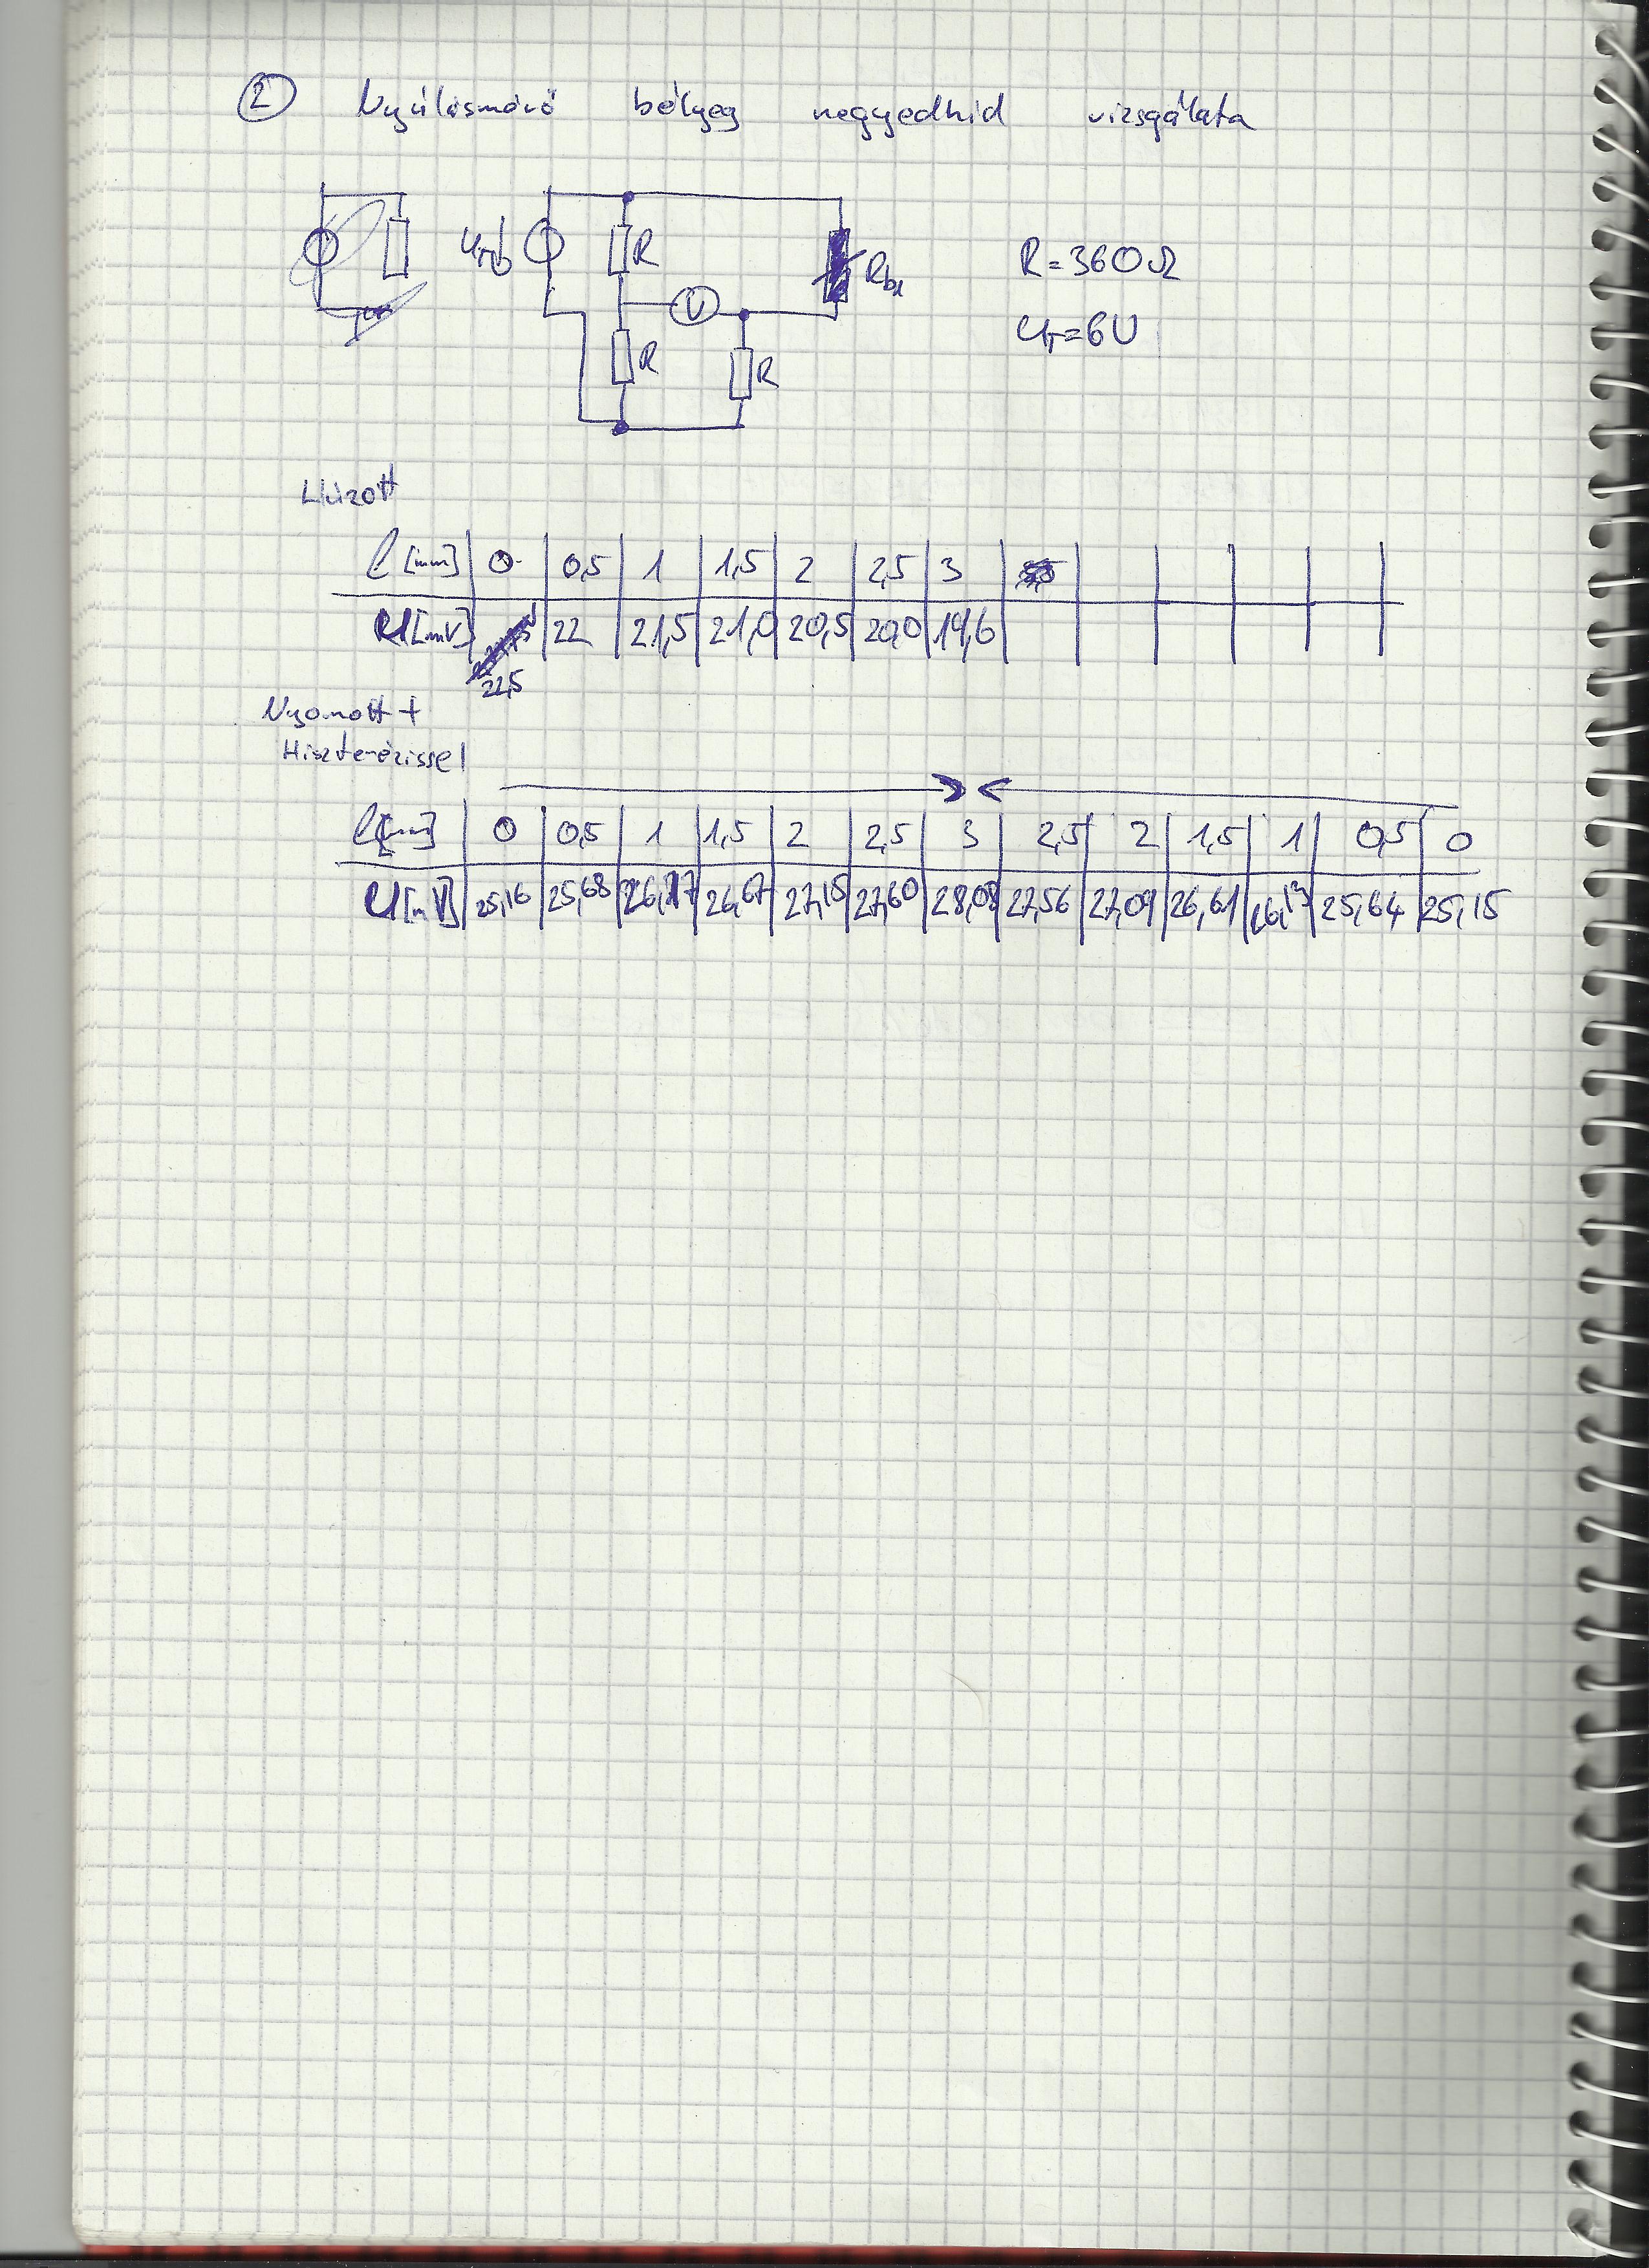 2 Nyúlásmérő bélyeg negyedhíd vizsgálata
UT R Rb1 R=360Ω
V UT=6V
R R
Húzott
l [mm] 0 0,5 1 1,5 2 2,5 3
U[mV] 22 21,5 21,0 20,5 20,0 19,6
22,5
Nyomott +
Hiszterézissel
l[mm] 0 0,5 1 1,5 2 2,5 3 2,5 2 1,5 1 0,5 0
U[mV] 25,16 25,68 26,17 26,67 27,15 27,60 28,08 27,56 27,09 26,61 25,64 25,15